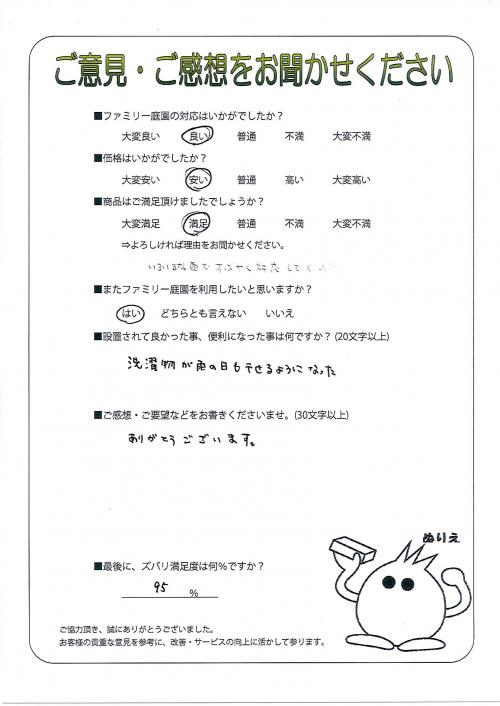 ご意見・ご感想をお聞かせください
■ファミリー庭園の対応はいかがでしたか？
大変良い 良い 普通 不満 大変不満
■価格はいかがでしたか？
大変安い 安い 普通 高い 大変高い
■商品はご満足頂けましたでしょうか？
大変満足 満足 普通 不満 大変不満
⇒よろしければ理由をお聞かせください。
いろいろな面ですばやく対応して
■またファミリー庭園を利用したいと思いますか？
はい どちらとも言えない いいえ
■設置されて良かった事、便利になった事は何ですか？(20文字以上)
洗濯物が雨の日も干せるようになった
■ご感想・ご要望などをお書きくださいませ。(30文字以上)
ありがとうございます。
ぬりえ
■最後に、ズバリ満足度は何%ですか？
95 %
ご協力頂き、誠にありがとうございました。
お客様の貴重な意見を参考に、改善・サービスの向上に活かして参ります。